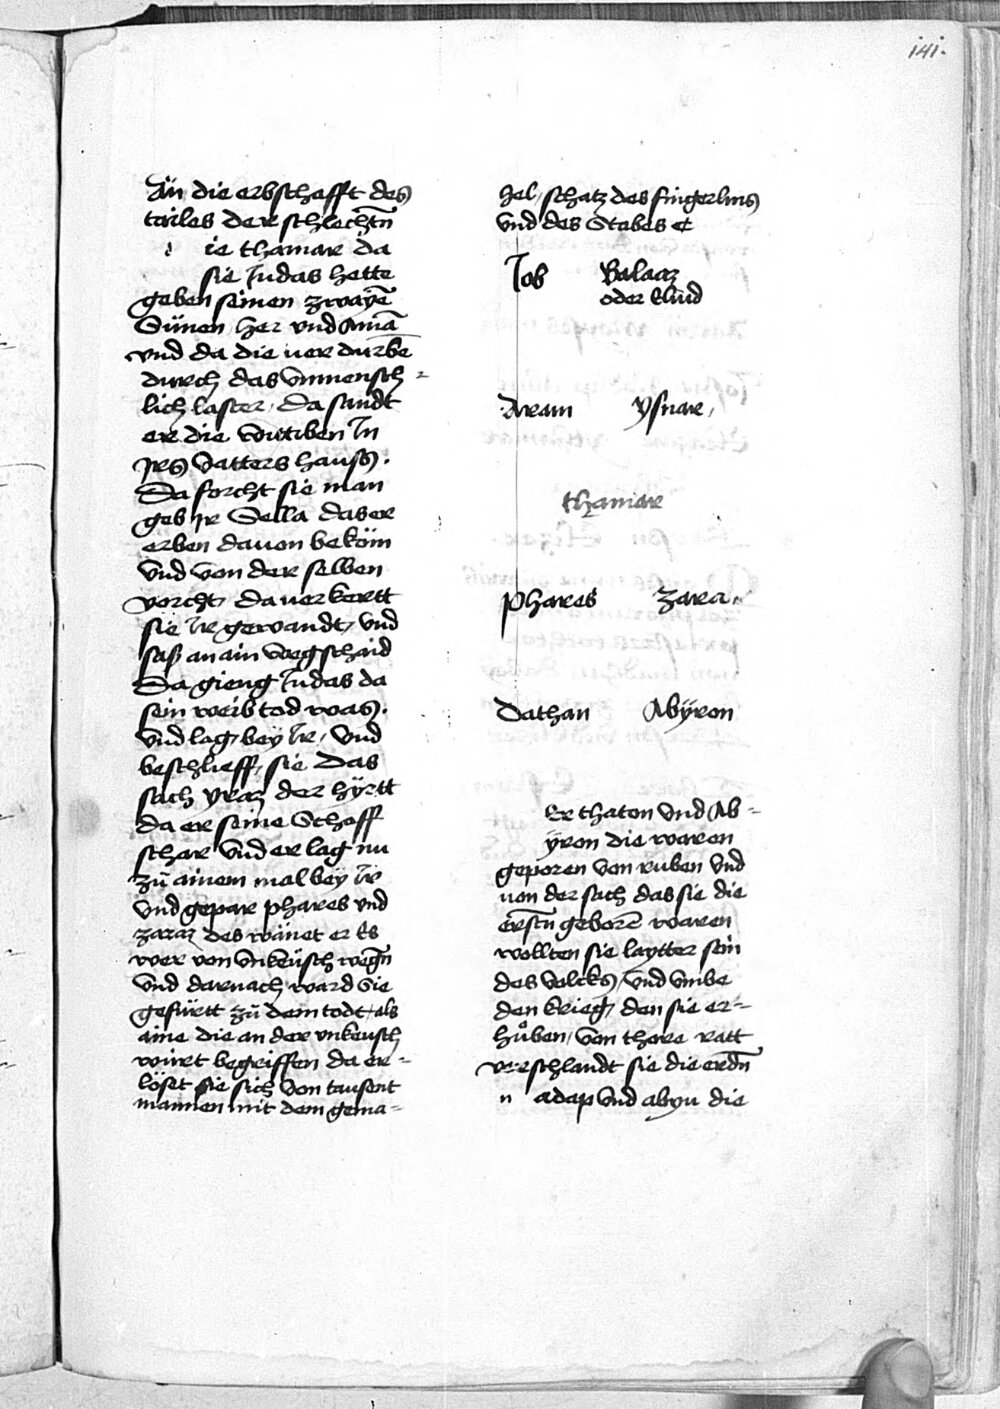 141.
An die erbschefft des
tailes der schlechtn̄
d ie thamar da
sie Judas hette
geben seinen zwaÿē
Sünen her vnd Amā
vnd da die uer durbē
durch das vnmensch-
lich laster, Da sandt
er die wittiben In
Jrs vatters hauss.
Da forcht sie man
geb Jr Sella das er
erben dauon beköm
vnd von der selben
vorcht, da uerkertt
sie Jr gewandt, vnd
saß an ain wegschaid
Da gieng Judas da
sein weib tod was.
vnd lag, beÿ Ir, vnd
beschlieff, sie Das
sach yraz der hÿrtt
da er seine Schaff
schar vnd er lag nu
zü ainem mal beÿ Ir
vnd gepar phares vnd
zaraz des wänet er Es
wer von vnkeüsch wegn̄
vnd darnach ward Sie
gefürtt zü dem todt, als
aine die an der vnkeusch
würt begriffen da er-
löset sie sich von tausent
mannen mit dem gema-
hel, schatz des fingerlins
vnd des Stabes ⁊
Job Balaaz
oder Eliud
Aram ysmar,
thamar
Phares zara.
Dathan Abÿron
Er thaton vnd Ab-
ÿron die waren
geporen von ruben vnd
von der sach das sie die
erstn̄ geborē waren
wollten sie laytter sein
des volcks, vnd vmbe
den krieg, den sie er-
hůben, von thore ratt
verschlandt sie die erdn̄
n adap vnd abyu die